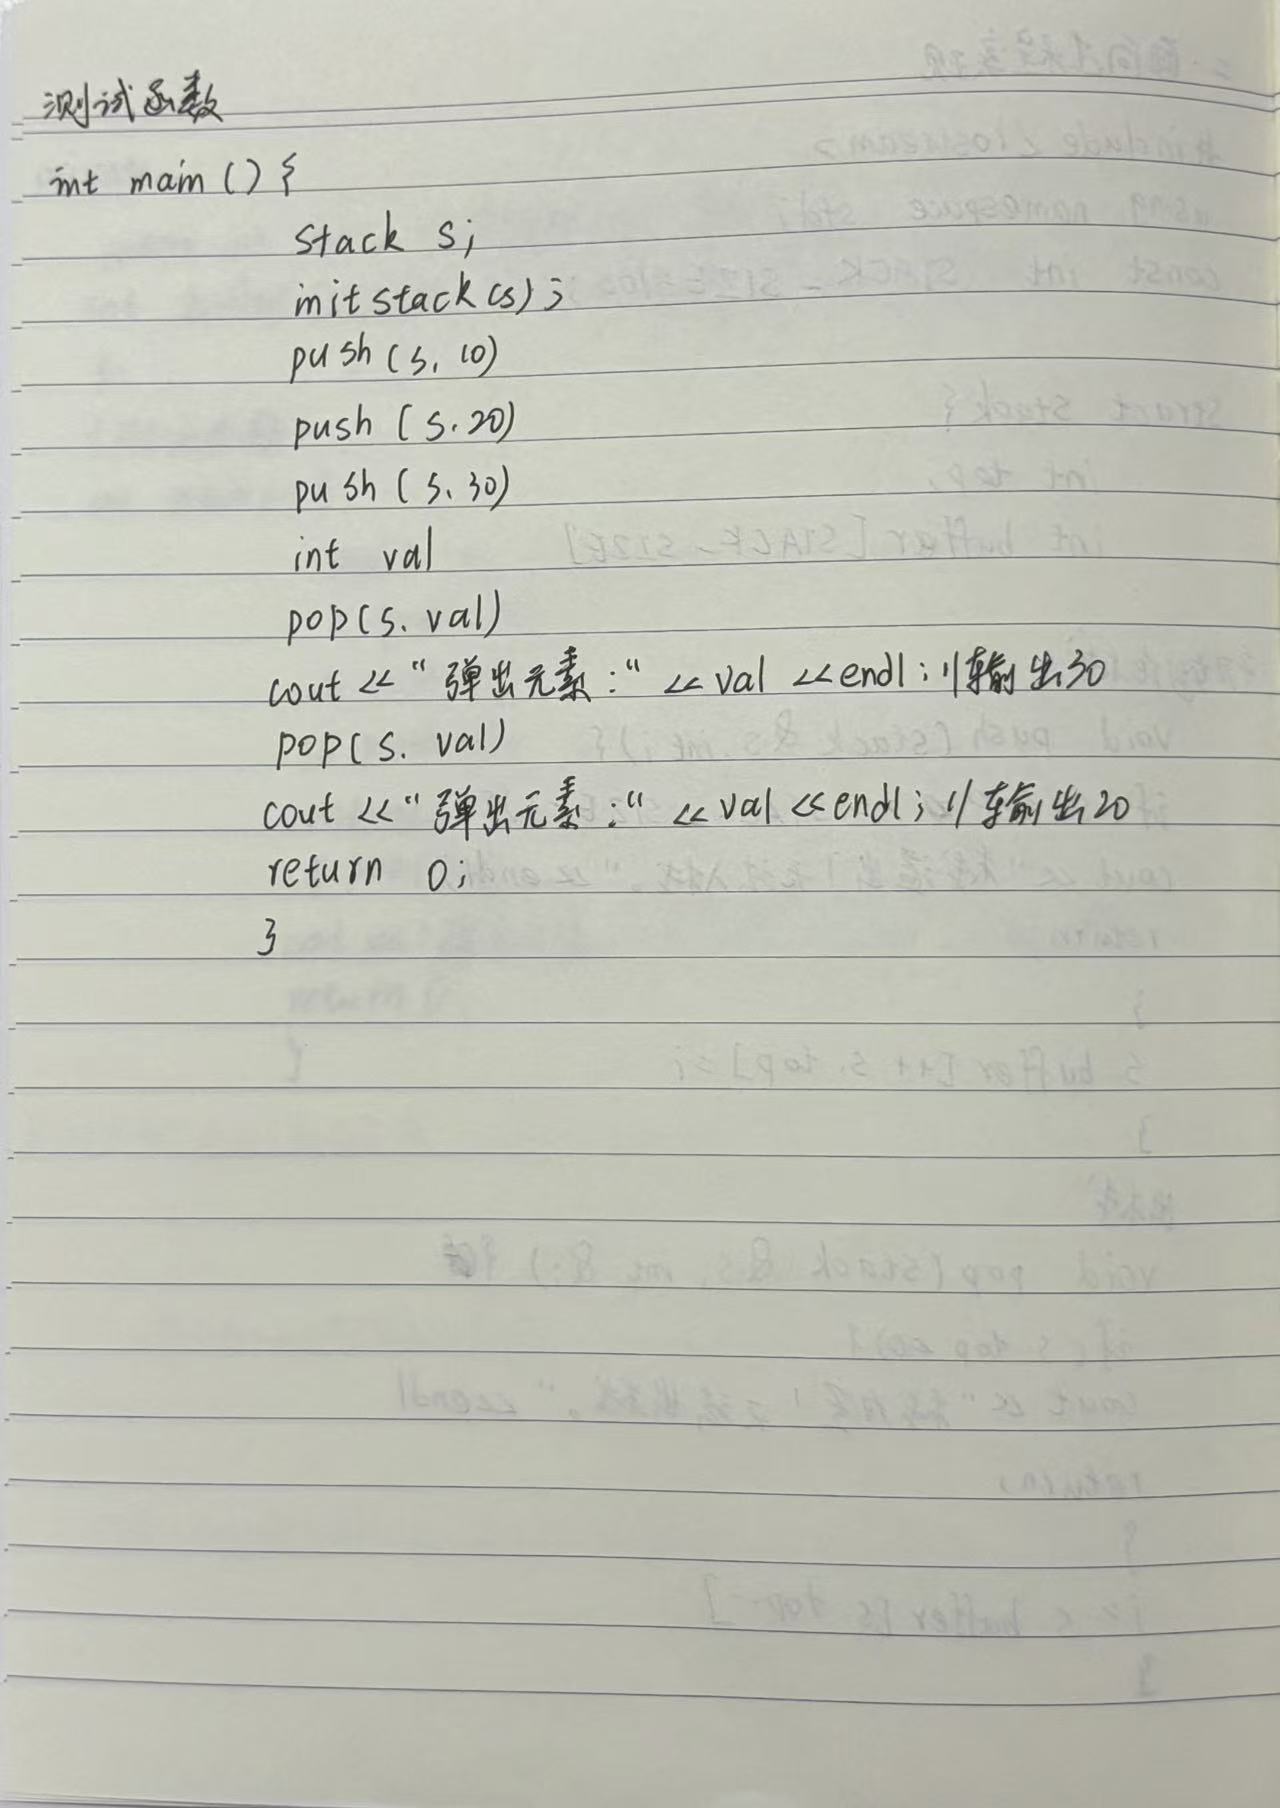 测试函数
int main () {
stack s;
initstack(s);
push(s, 10)
push(s.20)
push(s.30)
int val
pop(s.val)
cout << "弹出元素:" << val << endl; // 输出30
pop(s. val)
cout << "弹出元素:" << val << endl; // 输出20
return 0;
}